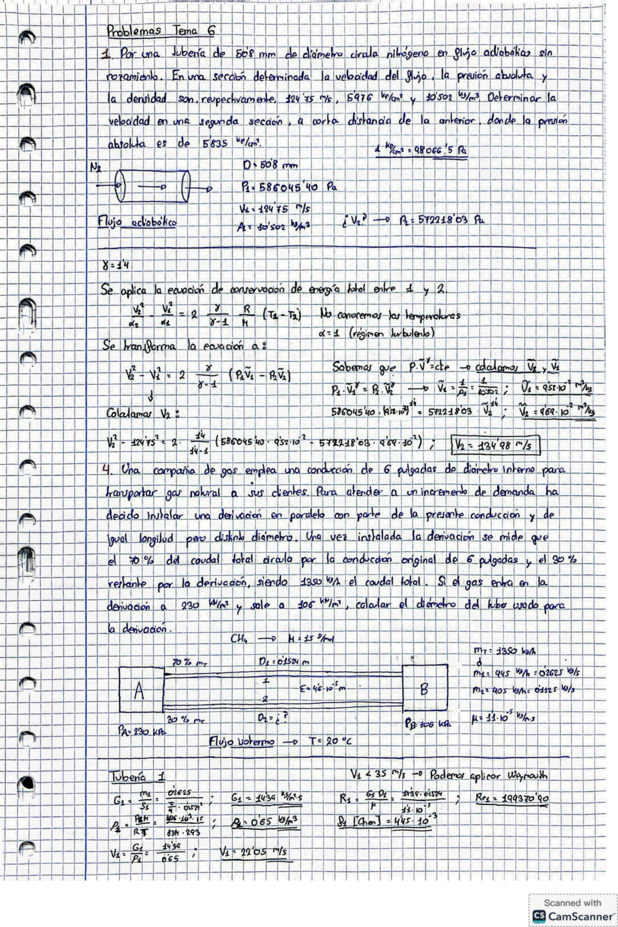 Problemas Tema 6
1. Por una tubería de 50'8 mm de diámetro circula nitrógeno en flujo adiabático sin
rozamiento. En una sección determinada la velocidad del flujo, la presión absoluta y
la densidad son, respectivamente, 124'75 m/s, 5'976 kp/cm² y 10'502 kg/m³. Determinar la
velocidad en una segunda sección, a corta distancia de la anterior, donde la presión
absoluta es de 5'835 kp/cm².
1 kp/cm² = 98066'5 Pa
N₂
D = 50'8 mm
P₁ = 586045'40 Pa
V₁ = 124'75 m/s
Flujo adiabático
ρ₁ = 10'502 kg/m³
¿V₂? → P₂ = 572218'03 Pa
γ = 1'4
Se aplica la ecuación de conservación de energía total entre 1 y 2.
V₂²/α₂ - V₁²/α₁ = 2 γ/(γ-1) R/M (T₁ - T₂) No conocemos las temperaturas
α = 1 (régimen turbulento)
Se transforma la ecuación a:
V₂² - V₁² = 2 γ/(γ-1) (P₁Ṽ₁ - P₂Ṽ₂)
Sabemos que P·Ṽ^γ = cte → calculamos Ṽ₂ y Ṽ₁
P₁·Ṽ₁^γ = P₂·Ṽ₂^γ → Ṽ₁ = 1/ρ₁ = 1/10'502 ; Ṽ₁ = 9'52·10⁻² m³/kg
Calculamos V₂ :
586045'40 · (9'52·10⁻²)^1'4 = 572218'03 · Ṽ₂^1'4 ; Ṽ₂ = 9'69·10⁻² m³/kg
V₂² - 124'75² = 2 · 1'4/(1'4-1) (586045'40 · 9'52·10⁻² - 572218'03 · 9'69·10⁻²) ; V₂ = 134'98 m/s
4. Una compañía de gas emplea una conducción de 6 pulgadas de diámetro interno para
transportar gas natural a sus clientes. Para atender a un incremento de demanda ha
decidido instalar una derivación en paralelo con parte de la presente conducción y de
igual longitud pero distinto diámetro. Una vez instalada la derivación se mide que
el 70 % del caudal total circula por la conducción original de 6 pulgadas y el 30 %
restante por la derivación, siendo 1350 kg/h el caudal total. Si el gas entra en la
derivación a 230 kN/m² y sale a 106 kN/m², calcular el diámetro del tubo usado para
la derivación.
CH₄ → M = 15 g/mol
70 % mT D₁ = 0'1524 m
mT = 1350 kg/h
m₁ = 945 kg/h = 0'2625 kg/s
A 1 ε = 46·10⁻⁶ m B
m₂ = 405 kg/h = 0'1125 kg/s
2
30 % mT D₂ = ¿?
PA = 230 kPa PB = 106 kPa
μ = 1'1·10⁻⁵ kg/m·s
Flujo isotermo → T = 20 °C
Tubería 1
V₁ < 35 m/s → Podemos aplicar Weymouth
G₁ = m₁/S₁ = 0'2625/(π/4 · 0'1524²) ; G₁ = 14'39 kg/m²·s
R₁ = G₁ D₁/μ = 14'39 · 0'1524/1'1·10⁻⁵ ; Re₁ = 199370'90
ρ₁ = P₂M/RT = 106·10³·15/8314·293 ; ρ₁ = 0'65 kg/m³
f₁ [Chen] = 4'45·10⁻³
V₁ = G₁/ρ₁ = 14'39/0'65 ; V₁ = 22'05 m/s
Scanned with
CS CamScanner